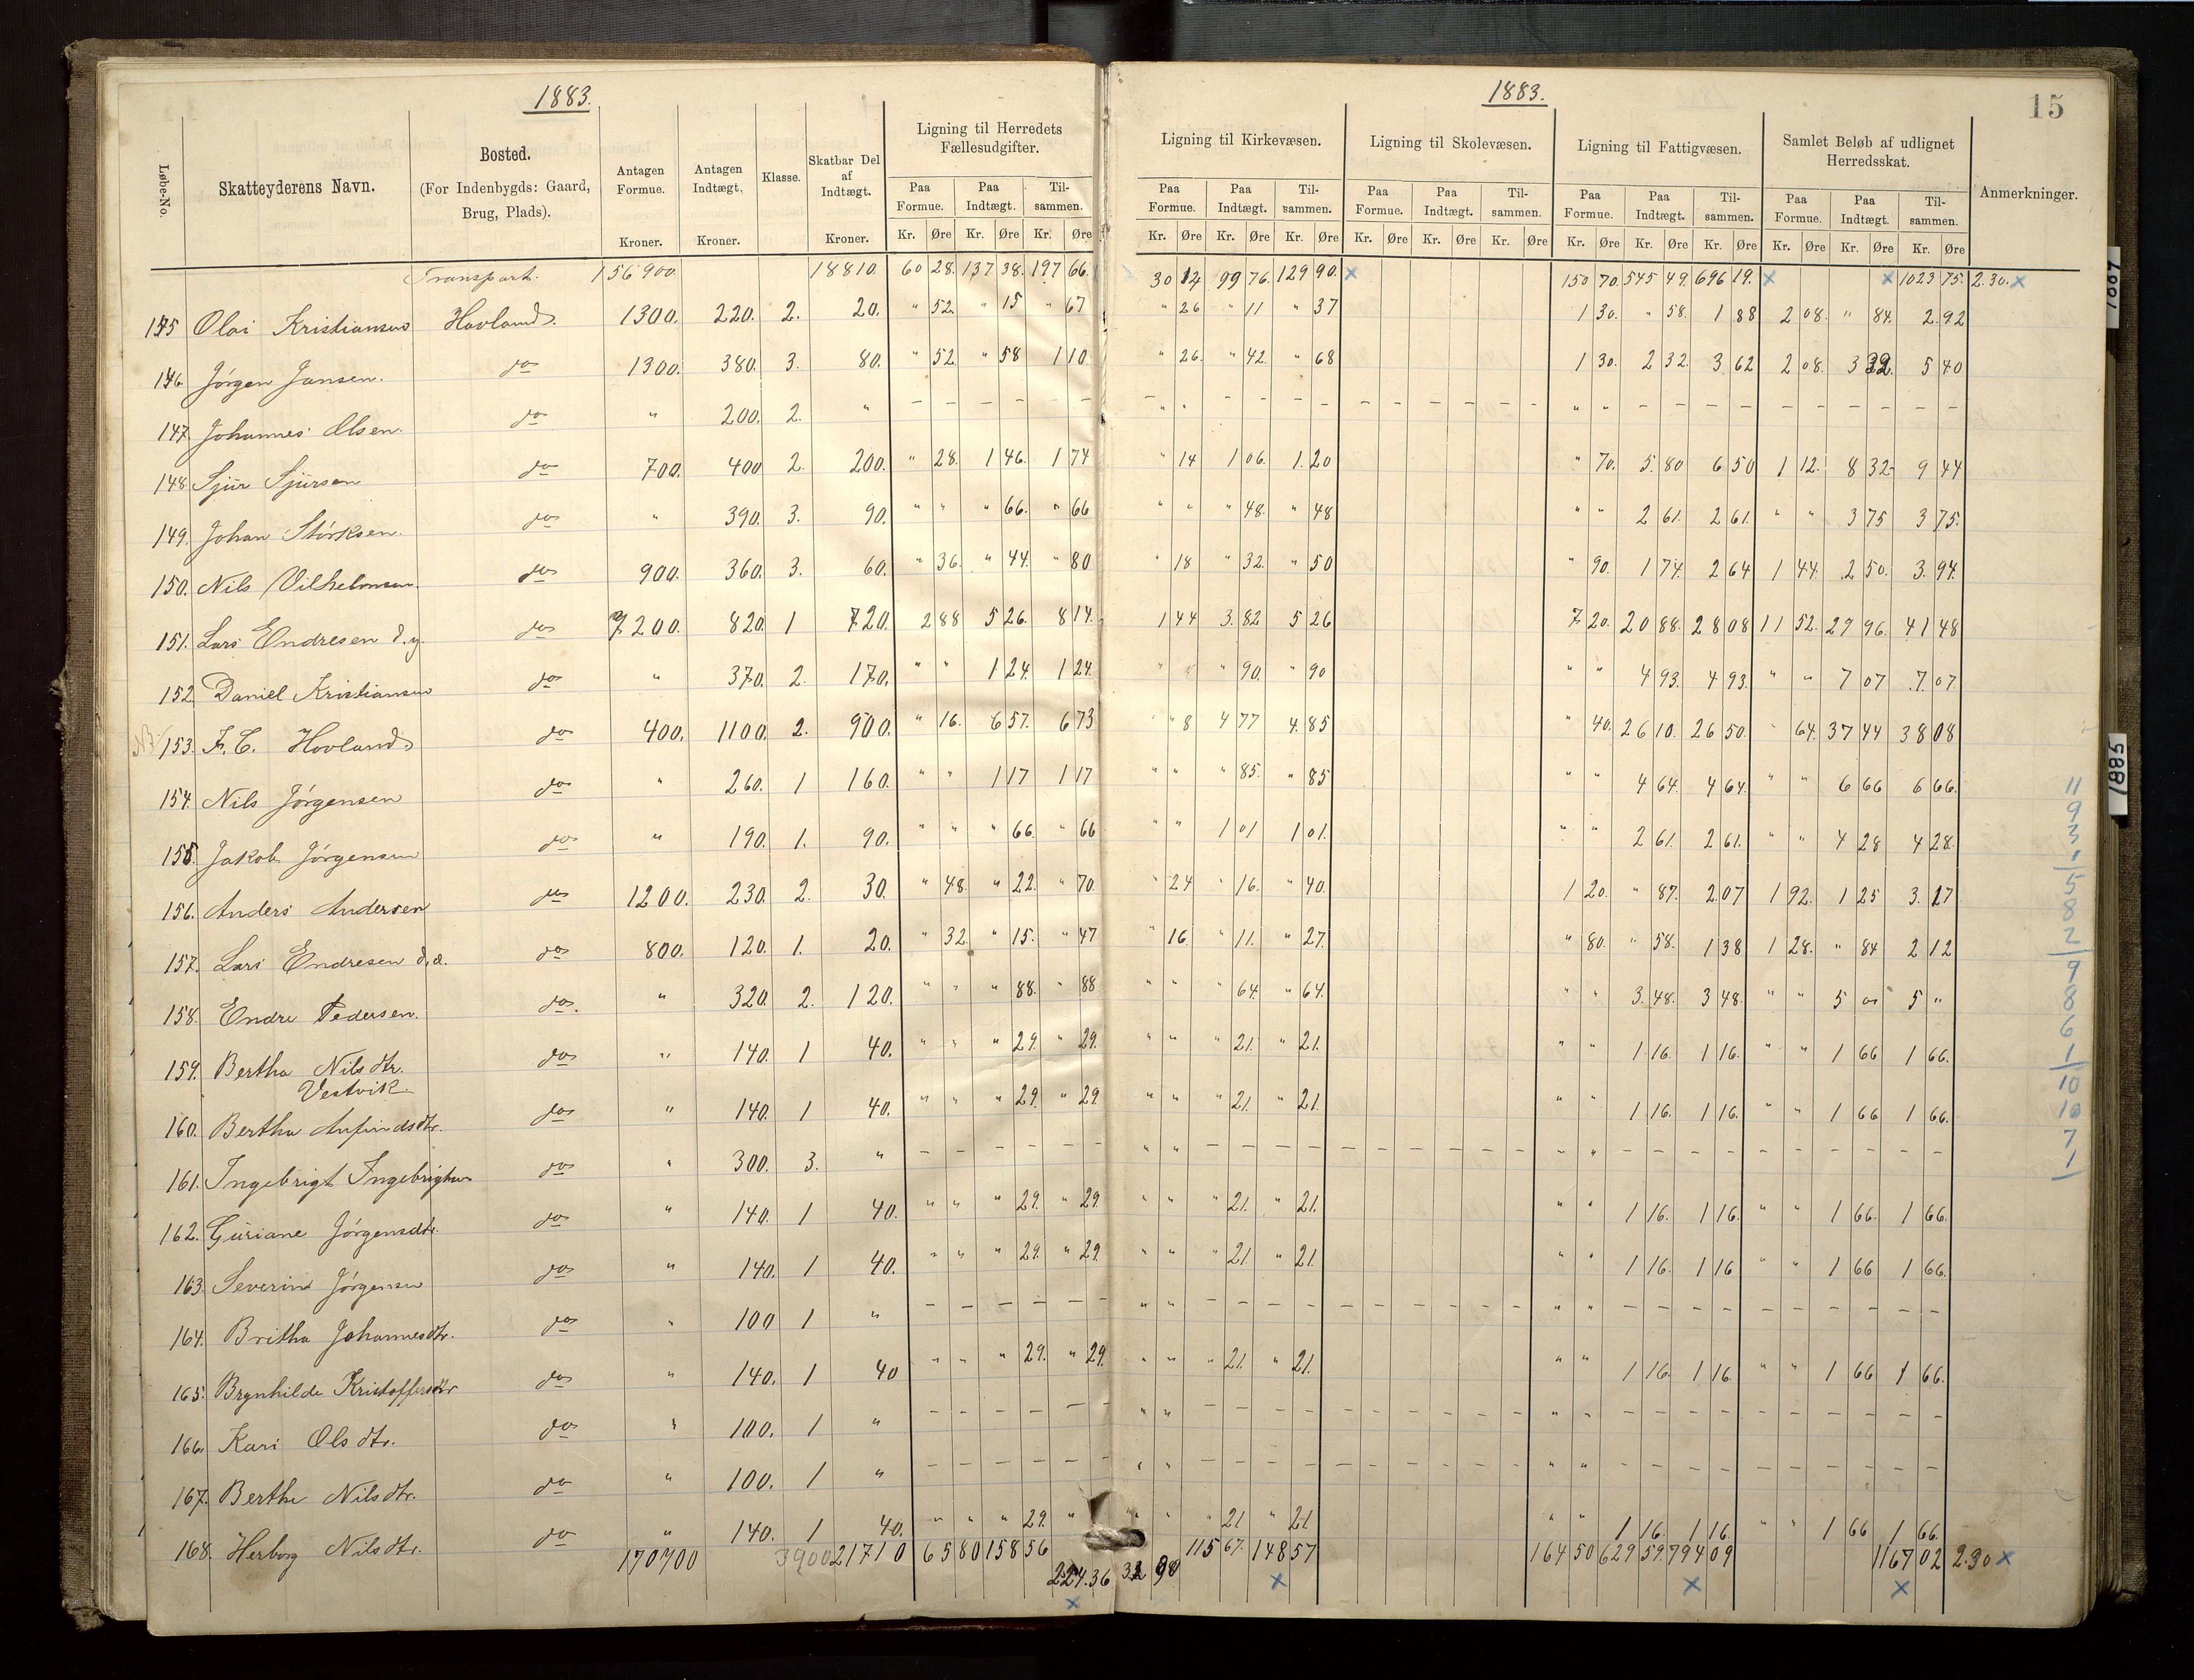 1883.
1883.
15
Løbe-No. Skatteyderens Navn. Bosted. (For Indenbygds: Gaard, Brug, Plads). Antagen Formue. Kroner. Antagen Indtægt. Kroner. Klasse. Skatbar Del af Indtægt. Kroner. Ligning til Herredets Fællesudgifter. Ligning til Kirkevæsen. Ligning til Skolevæsen. Ligning til Fattigvæsen. Samlet Beløb af udlignet Herredsskat. Anmerkninger.
Paa Formue. Paa Indtægt. Til-sammen. Paa Formue. Paa Indtægt. Til-sammen. Paa Formue. Paa Indtægt. Til-sammen. Paa Formue. Paa Indtægt. Til-sammen. Paa Formue. Paa Indtægt. Til-sammen.
Kr. Øre Kr. Øre Kr. Øre Kr. Øre Kr. Øre Kr. Øre Kr. Øre Kr. Øre Kr. Øre Kr. Øre Kr. Øre Kr. Øre Kr. Øre Kr. Øre Kr. Øre
Transport. 156900. 18810. 60 28. 137 38. 197 66. 30 12 99 76. 129 90. x 150 70. 545 49. 696 19. x x 1023 75. 2.30. x
145 Olai Kristiansen Hovland. 1300. 220. 2. 20. " 52. " 15 " 67 " 26 " 11 " 37 1 30. " 58. 1 88 2 08. " 84. 2.92
146. Jørgen Jansen. do 1300. 380. 3. 80. " 52. " 58 1 10 " 26. " 42. " 68 1 30. 2 32. 3 62 2 08. 3 32. 5 40
147. Johannes Olsen. do " 200. 2. " – – – – – – – " " – – – – – – – – – – " " – – – – – – – – – –
148. Sjur Sjursen do 700. 400 2. 200. " 28. 1 46. 1 74 " 14 1 06. 1.20 " 70. 5.80 6 50 1 12. 8 32 9 44
149. Johan Størksen. do " 390. 3. 90. " " " 66. " 66 " " " 48. " 48 " " 2 61. 2 61. " " 3 75 3 75.
150. Nils Vilhelmsen. do 900. 360. 3. 60. " 36. " 44. " 80 " 18 " 32. " 50 " 90. 1 74. 2 64 1 44. 2 50. 3.94.
151. Lars Endresen d.y. do 7200. 820. 1 720. 2 88 5 26. 8 14. 1 44 3.82 5 26 7 20. 20 88. 28 08 11 52. 29 96. 41 48
152. Daniel Kristiansen do " 370. 2. 170. " " 1 24. 1 24. " " " 90. " 90 " " 4 93. 4 93. " " 7 07 7.07.
NB 153. F. C. Hovland do 400. 1100. 2. 900. " 16. 6 57. 6 73 " 8 4 77 4.85 " 40. 26 10. 26 50. " 64. 37 44 38 08
154. Nils Jørgensen do " 260. 1 160. " " 1 17 1 17 " " " 85. " 85 " " 4 64. 4 64. " " 6 66 6 66.
155. Jakob Jørgensen do " 190. 1. 90. " " " 66. " 66 " " 1 01 1 01. " " 2 61. 2 61. " " 4 28 4 28.
156. Anders Andersen do 1200. 230. 2. 30. " 48. " 22. " 70. " 24 " 16. " 40. 1 20. " 87. 2.07 1 92. 1 25 3.17
157. Lars Endresen d.æ. do 800. 120. 1. 20. " 32. " 15. " 47 " 16. " 11. " 27. " 80. " 58. 1 38 1 28. " 84 2 12
158. Endre Pedersen. do. " 320. 2. 120. " " " 88. " 88 " " " 64. " 64. " " 3.48. 3 48. " " 5 " 5 "
159. Bertha Nilsdtr. do " 140. 1 40. " " " 29. " 29. " " " 21. " 21. " " 1 16. 1 16. " " 1 66 1 66.
Vestvik.
160. Bertha Anfindsdtr. do " 140. 1 40. " " " 29. " 29 " " " 21. " 21. " " 1 16. 1 16. " " 1 66 1 66.
161. Ingebrigt Ingebrigtsen do " 300. 3. " – – – – – – " " – – – – – – – – – – " " – – – – – – – – – –
162. Guriane Jørgensdtr. do " 140. 1 40. " " " 29. " 29. " " " 21. " 21. " " 1 16. 1 16. " " 1 66. 1 66.
163. Severine Jørgensen do " 140. 1 40. " " " 29. " 29. " " " 21 " 21. " " 1 16. 1 16 " " 1 66 1 66.
164. Britha Johannesdtr. do " 100 1 " – – – – – – " " – – – – – – – – – – " " – – – – – – – – – –
165. Brynhilde Kristoffersdtr do " 140. 1 40 " " " 29. " 29. " " " 21. " 21. " " 1 16. 1 16. " " 1 66 1 66.
166. Kari Olsdtr. do " 100. 1 " – – – – – – " " – – – – – – – – – – " " – – – – – – – – – –
167. Berthe Nilsdtr. do " 100. 1 " – – – – – – " " – – – – – – – – – – " " – – – – – – – – – –
168. Herborg Nilsdtr. do " 140. 1 40. " " " 29. " " " " 21 " 21 " " 1 16. 1 16. " " 1 66 1 66.
170700 3900 21710 65 80 158 56 224.36 32 90 115 67. 148 57 164 50 629 59.794 09 1167 02 2.30 x
x x x x
11
9
3
1
5
8
2
9
8
6
1
10
10
7
1
1887
1885